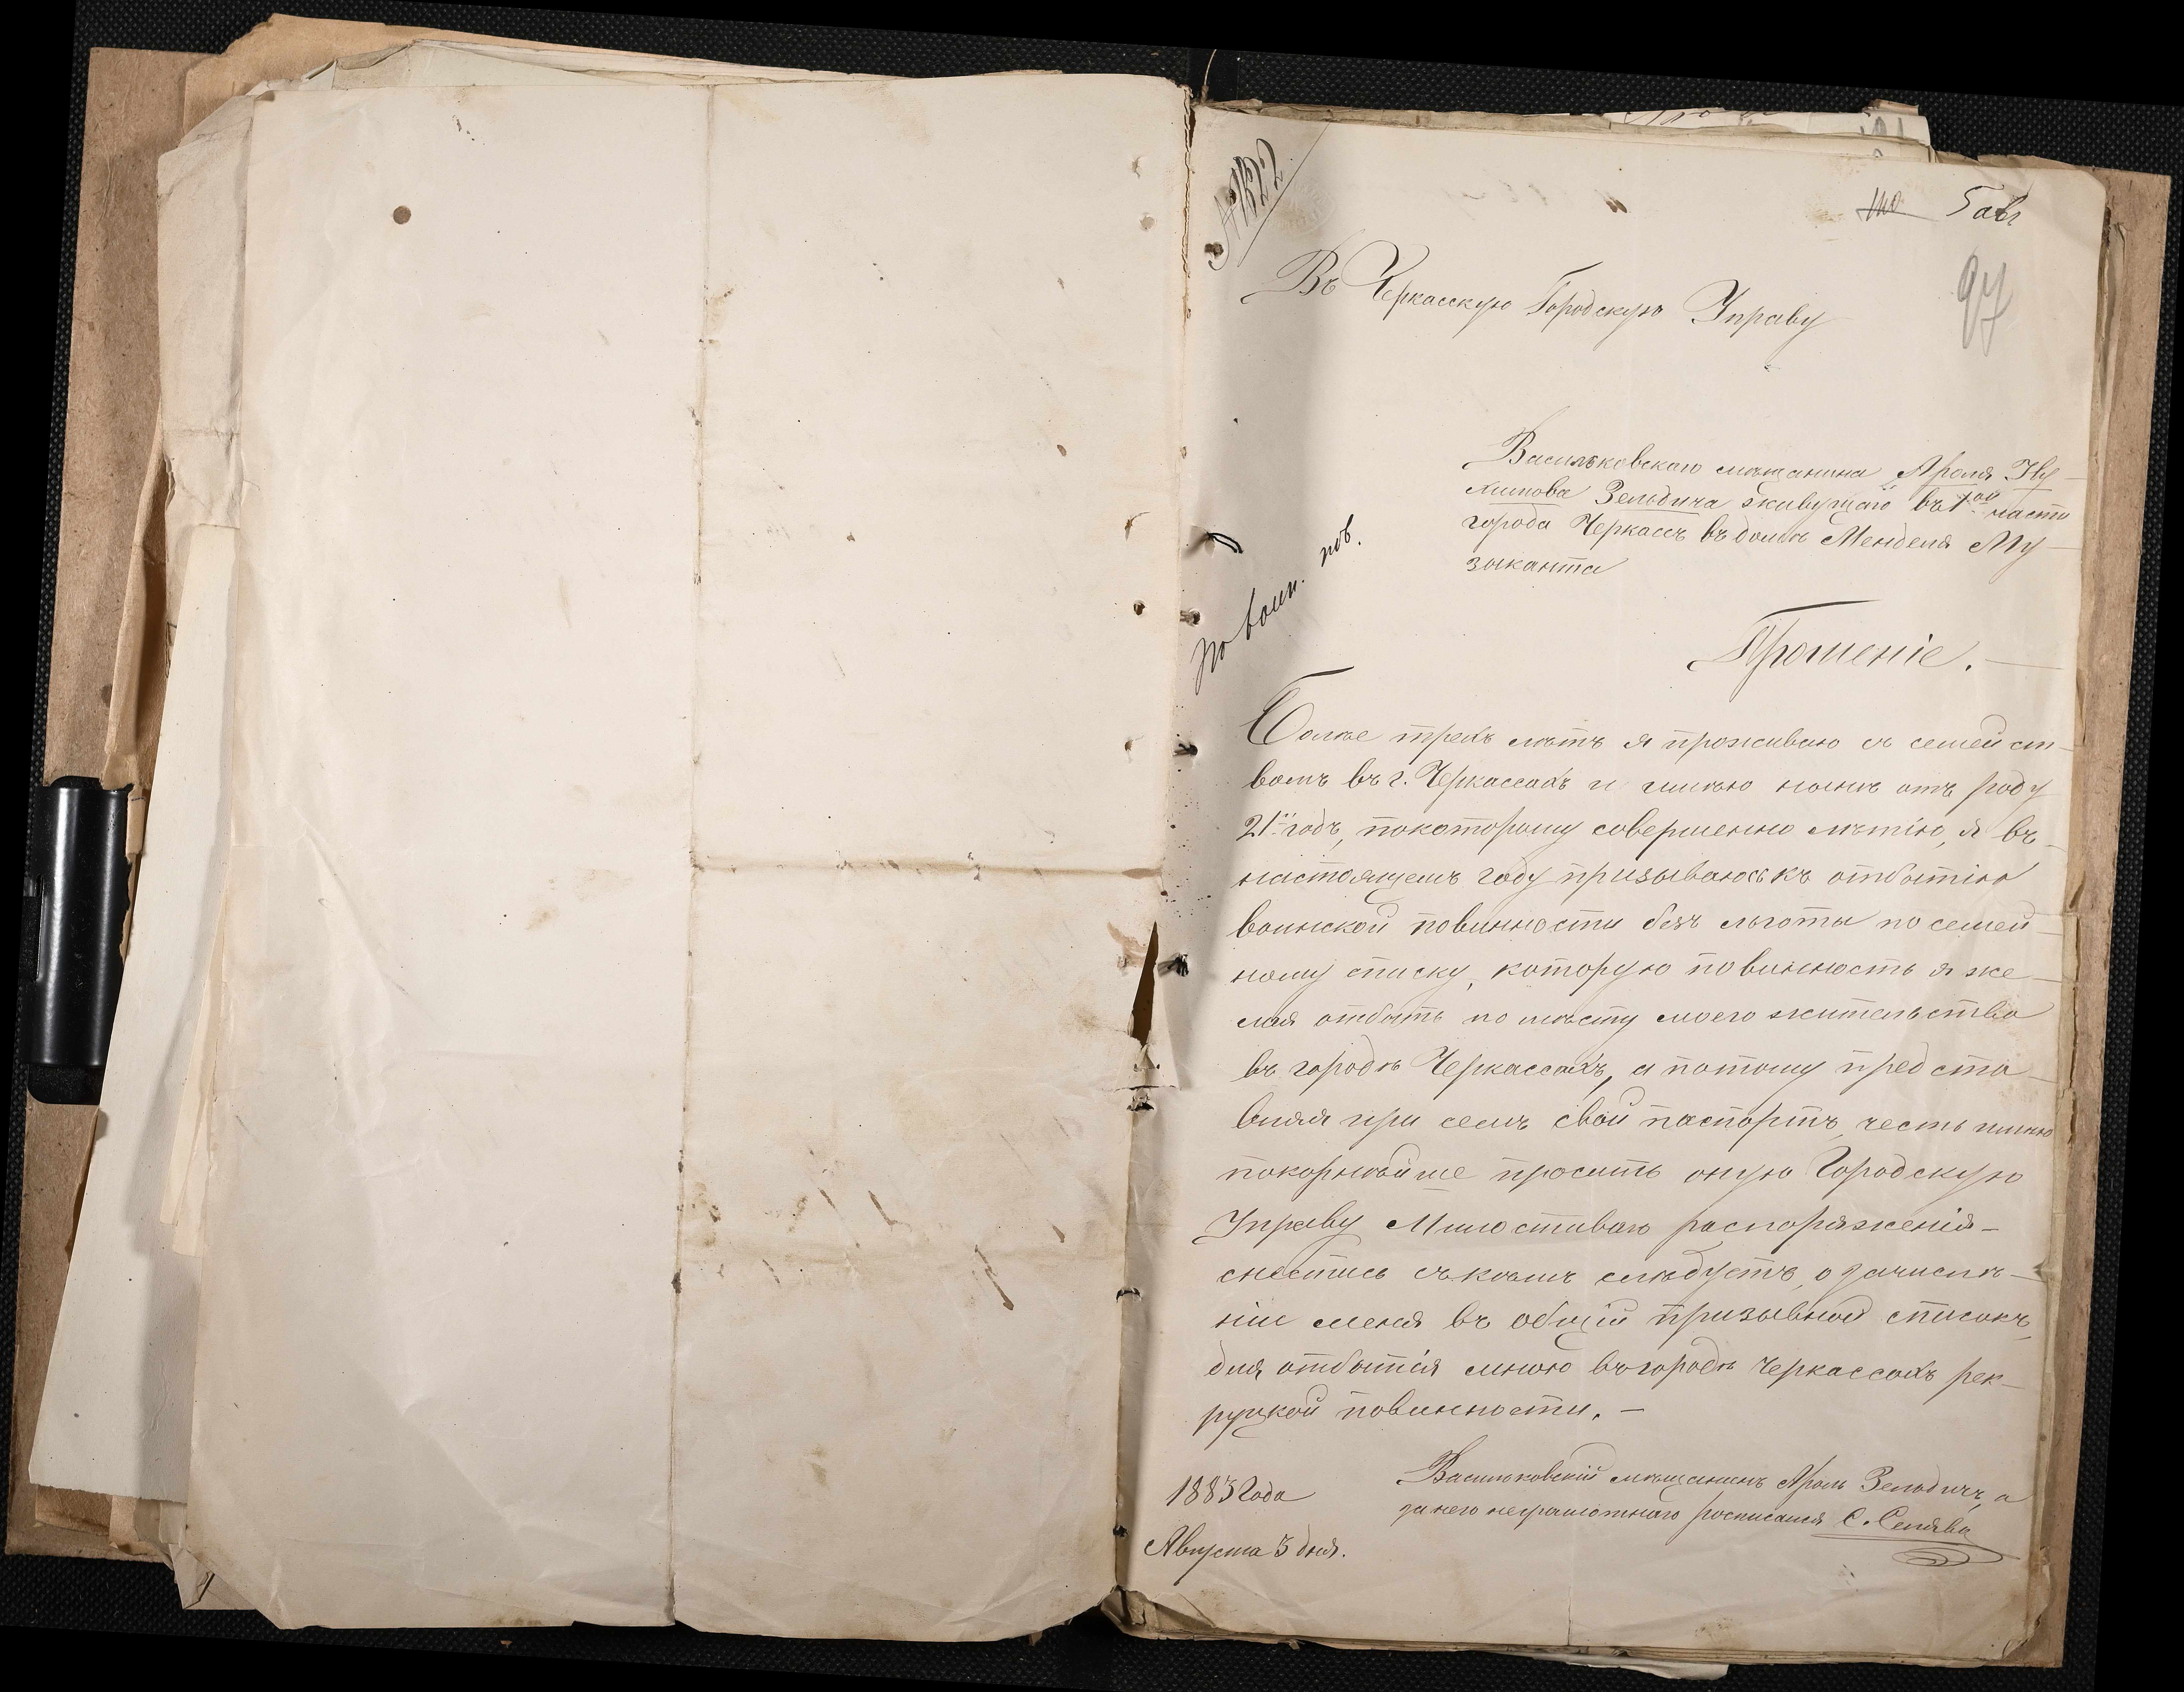 № 1822
110 5 авг
97
Въ Черкасскую Городскую Управу
Васильковскаго мѣщанина Арона Ну-
химова Зельдича живущаго въ 1ой части
города Черкассъ въ домѣ Менделя Му-
зыканта
По воин. пов.
Прошеніе. —
Более трехъ лѣтъ я проживаю съ семейст-
вомъ въ г. Черкассахъ и имѣю нынѣ отъ роду
21й годъ, покоторому совершенно лѣтію, я въ
настоящемъ году призываюсь къ отбытію
воинской повинности безъ льготы по семей-
ному списку, которую повинность я же-
лая отбыть по мѣсту моего жительства
въ городѣ Черкассахъ, а потому предста-
вляя при семъ свой паспортъ, честь имѣю
покорнѣйше просить оную Городскую
Управу Милостиваго распоряженія —
снестись съ кѣмъ слѣдуетъ, о зачислѣ-
ніи меня въ общій призывной списокъ,
для отбытія мною въ городѣ Черкассахъ рек-
руцкой повинности. —
Васильковскій мѣщанинъ Аронъ Зельдичъ, а
за него неграмотнаго росписался С. Сенява
1883 Года
Августа 3 дня.